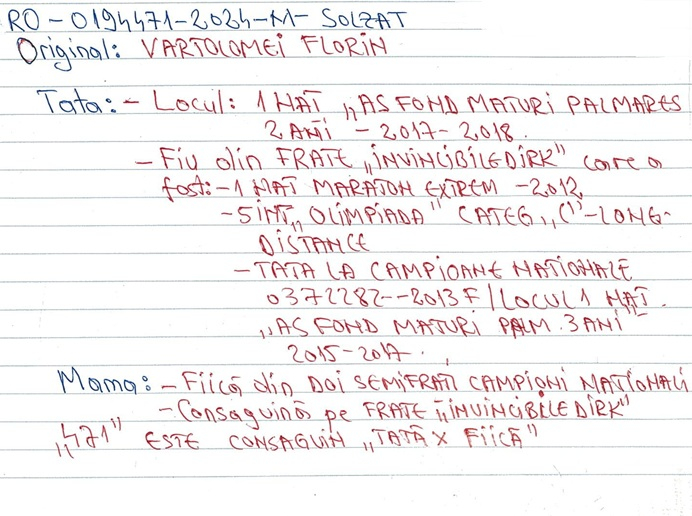 RO-0194471-2024-M- SOLZAT
Original: VARTOLOMEI FLORIN
Tata: - Locul: 1 NAȚ „AS FOND MATURI PALMARES
2 ANI - 2017-2018.
- Fiu din FRATE „INVINCIBILE DIRK" care a
fost: - 1 NAȚ MARATON EXTREM - 2012
- 5 INT „OLIMPIADA" CATEG „C"-LONG-
DISTANCE
- TATA LA CAMPIOANE NAȚIONALE
0372282--2013 F / LOCUL 1 NAȚ.
„AS FOND MATURI PALM. 3 ANI"
2015-2017.
Mama: - Fiică din DOI SEMIFRAȚI CAMPIONI NAȚIONALI
- Consaguină pe FRATE „INVINCIBILE DIRK"
„471" ESTE CONSAGUIN „TATĂ X FIICĂ"